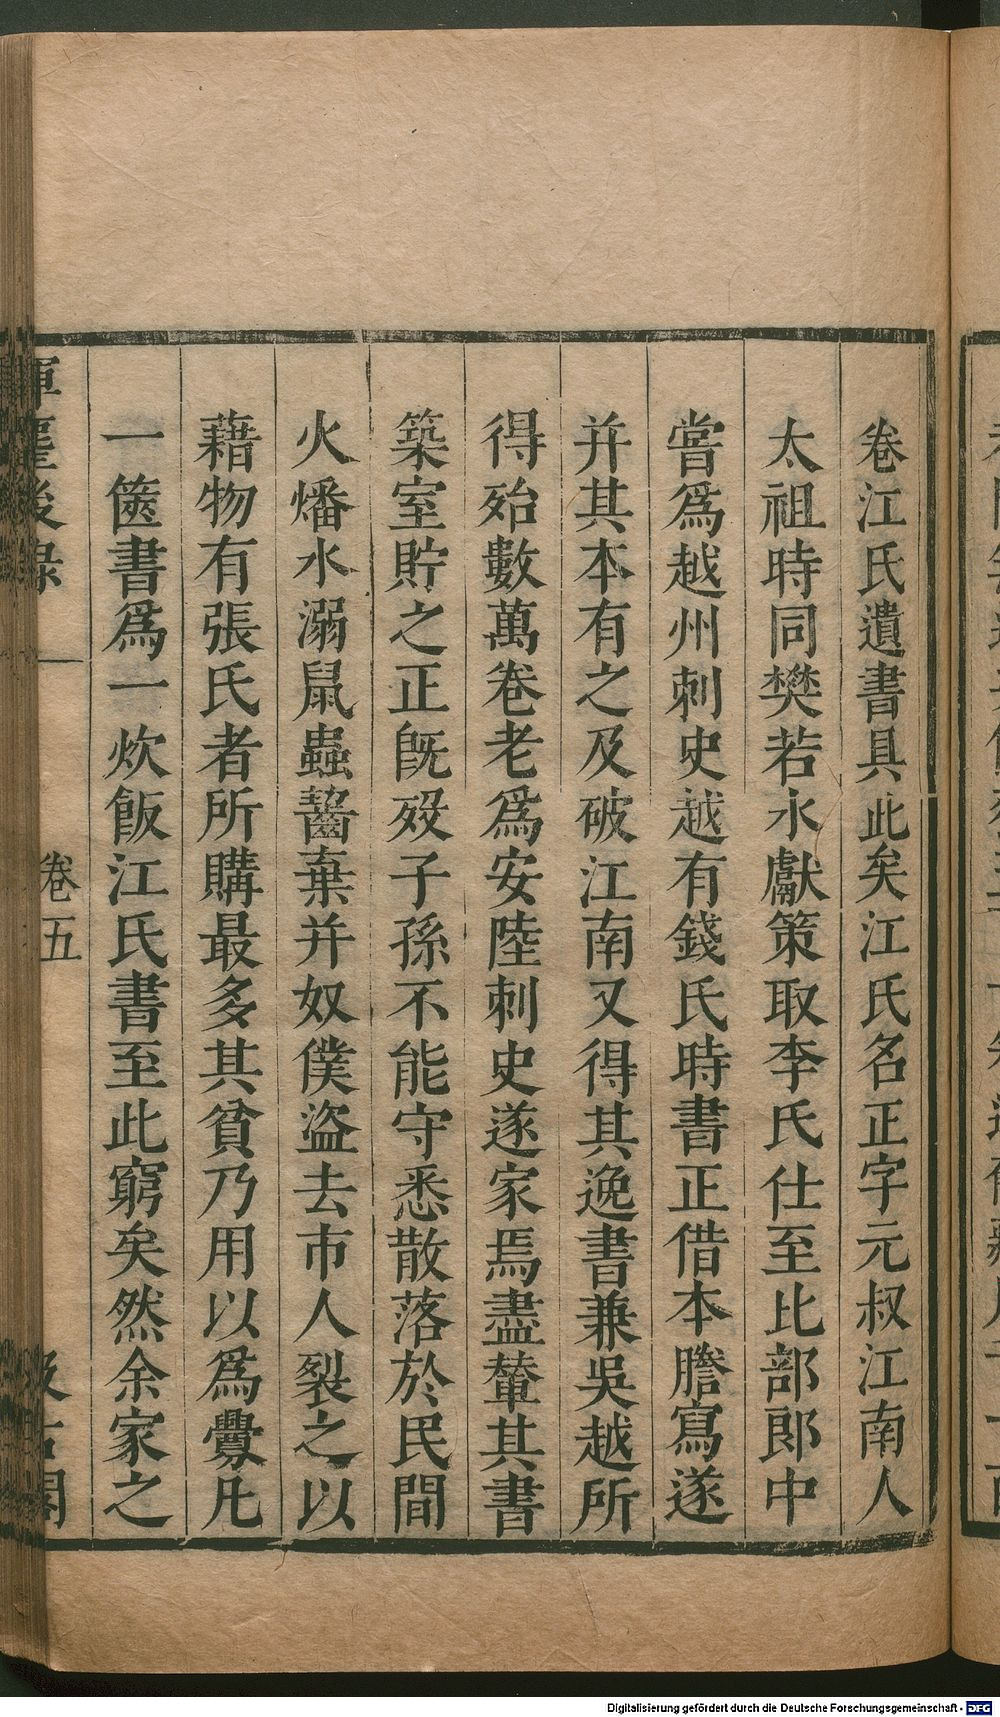 卷江氏遺書具此矣江氏名正字元叔江南人
太祖時同樊若水獻策取李氏仕至比部郎中
嘗爲越州刺史越有錢氏時書正借本謄寫遂
并其本有之及破江南又得其逸書兼吳越所
得殆數萬卷老爲安陸刺史遂家焉盡輦其書
築室貯之正旣歿子孫不能守悉散落於民間
火燔水溺鼠蟲齧棄并奴僕盜去市人裂之以
藉物有張氏者所購最多其貧乃用以爲爨凡
一篋書爲一炊飯江氏書至此窮矣然余家之
後錄 卷五
Digitalisierung gefördert durch die Deutsche Forschungsgemeinschaft - DFG